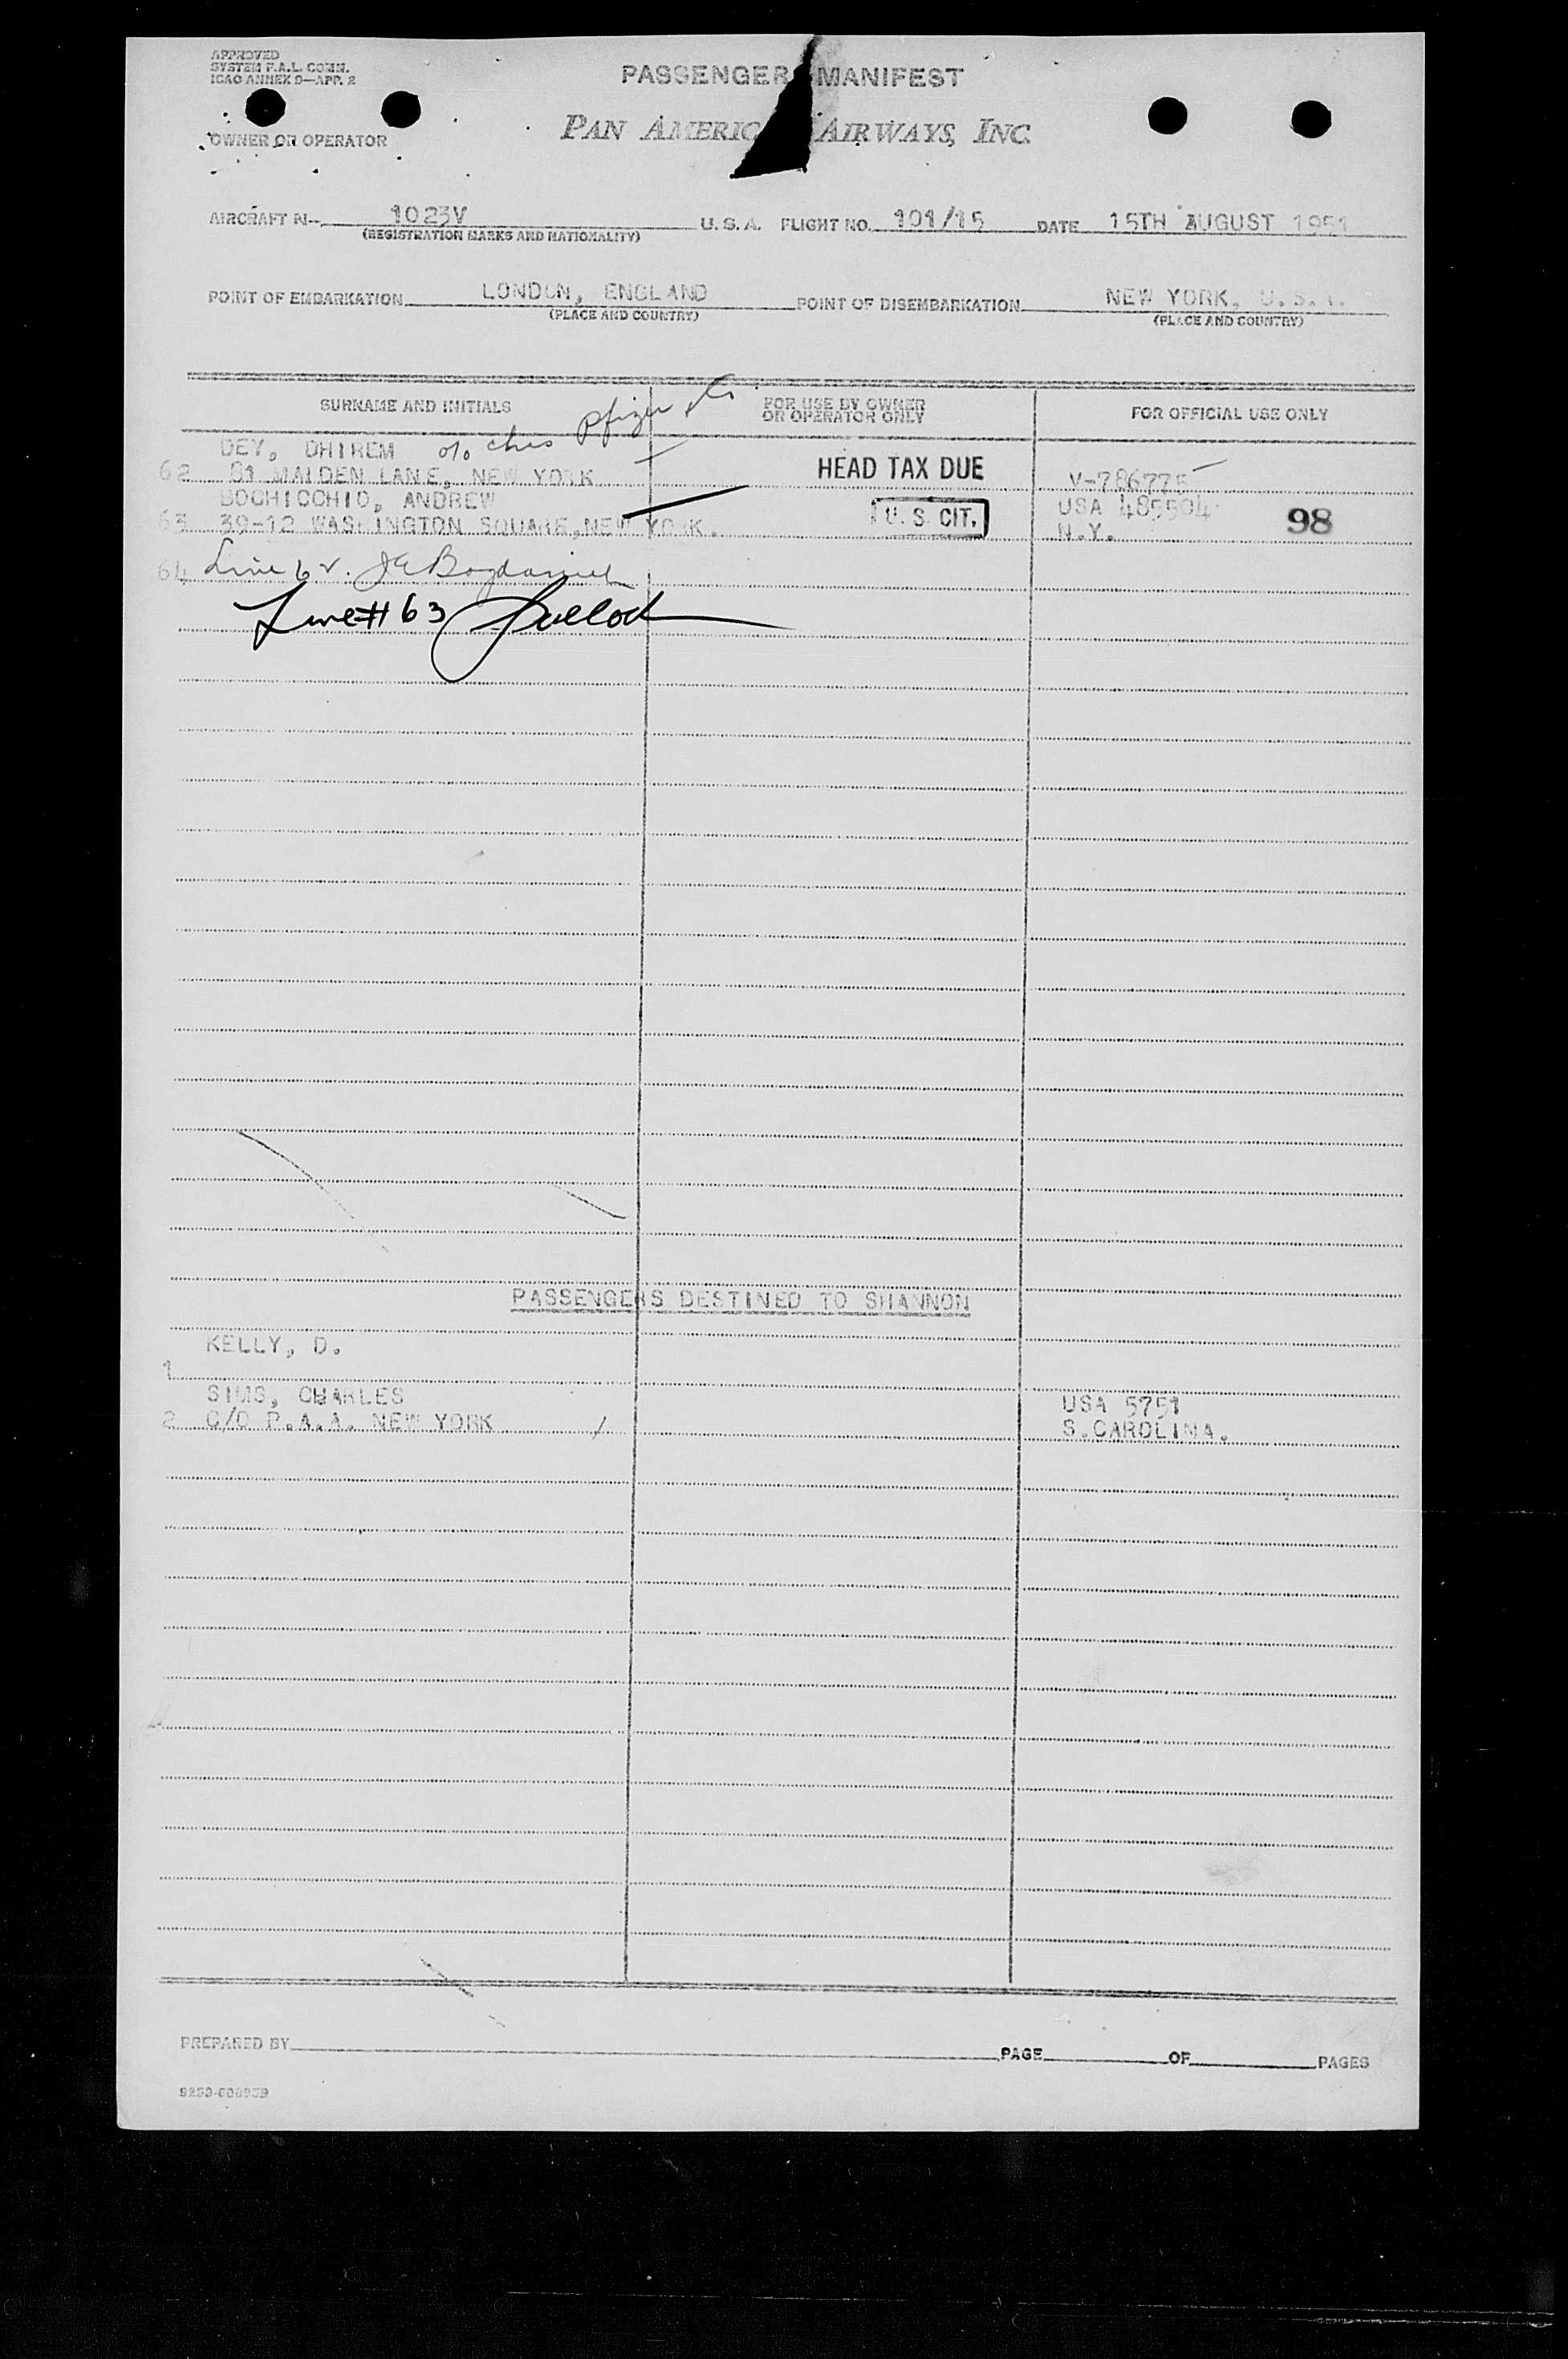 APPROVED
SYSTEM F.A.L. COMM.
ICAO ANNEX 9—APP. 2
PASSENGER MANIFEST
OWNER OR OPERATOR
PAN AMERIC AIRWAYS, INC.
AIRCRAFT N-- 1023V U. S. A. FLIGHT NO. 101/15 DATE 15TH AUGUST 1951
(REGISTRATION MARKS AND NATIONALITY)
POINT OF EMBARKATION LONDON, ENGLAND POINT OF DISEMBARKATION NEW YORK, U.S.A.
(PLACE AND COUNTRY) (PLACE AND COUNTRY)
SURNAME AND INITIALS FOR USE BY OWNER OR OPERATOR ONLY FOR OFFICIAL USE ONLY
DEY, DHIREM c/o Chas Pfizer & Co
62 81 MAIDEN LANE, NEW YORK HEAD TAX DUE V-786775
BOCHICCHIO, ANDREW USA 485504
63 39-12 WASHINGTON SQUARE, NEW YORK. U. S. CIT. N.Y. 98
64 Line 62.
Line # 63
PASSENGERS DESTINED TO SHANNON
KELLY, D.
1
SIMS, CHARLES USA 5751
2 C/O P.A.A. NEW YORK S.CAROLINA.
PREPARED BY PAGE OF PAGES